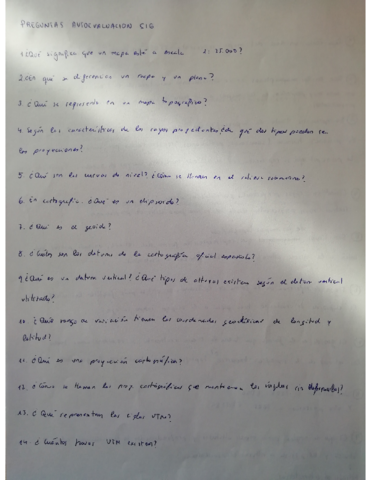 PREGUNTAS AUTOEVALUACION SIG
1. ¿Qué significa que un mapa está a escala 1:25.000?
2. ¿En qué se diferencia un mapa y un plano?
3. ¿Qué se representa en un mapa topográfico?
4. Según las características de los rayos proyectantes, de qué dos tipos pueden ser
las proyecciones?
5. ¿Qué son las curvas de nivel? ¿Cómo se llaman en el relieve submarino?
6. En cartografía ¿Qué es un elipsoide?
7. ¿Qué es el geoide?
8. ¿Cuáles son los datums de la cartografía oficial española?
9 ¿Qué es un datum vertical? ¿Qué tipos de alturas existen según el datum vertical
utilizado?
10 ¿Qué rango de variación tienen las coordenadas geodésicas de longitud y
latitud?
11 ¿Qué es una proyección cartográfica?
12. ¿Cómo se llaman las proy. cartográficas que mantienen los ángulos sin
13. ¿Qué representan las UTM?
14. ¿Cuántos husos UTM existen?